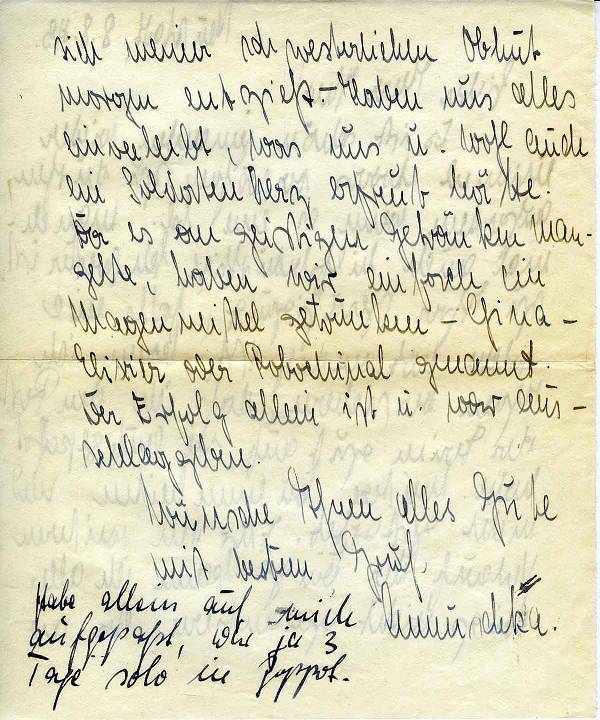 sich meiner schwesterlichen Obhut
morgen entzieht. – Haben uns alles
einverleibt, was uns u. wohl auch
ein Soldaten Herz erfreut hätte.
Da es an geistigen Getränken man-
gelte, haben wir einfach ein
Magenmittel getrunken – China –
Elixier oder genannt.
Der Erfolg allein ist u. war aus-
schlaggeben.
Wünsche Ihnen alles Gute
mit bestem Gruß
Habe allein auf mich
aufgepaßt, war ja 3
Tage solo in Zoppot.